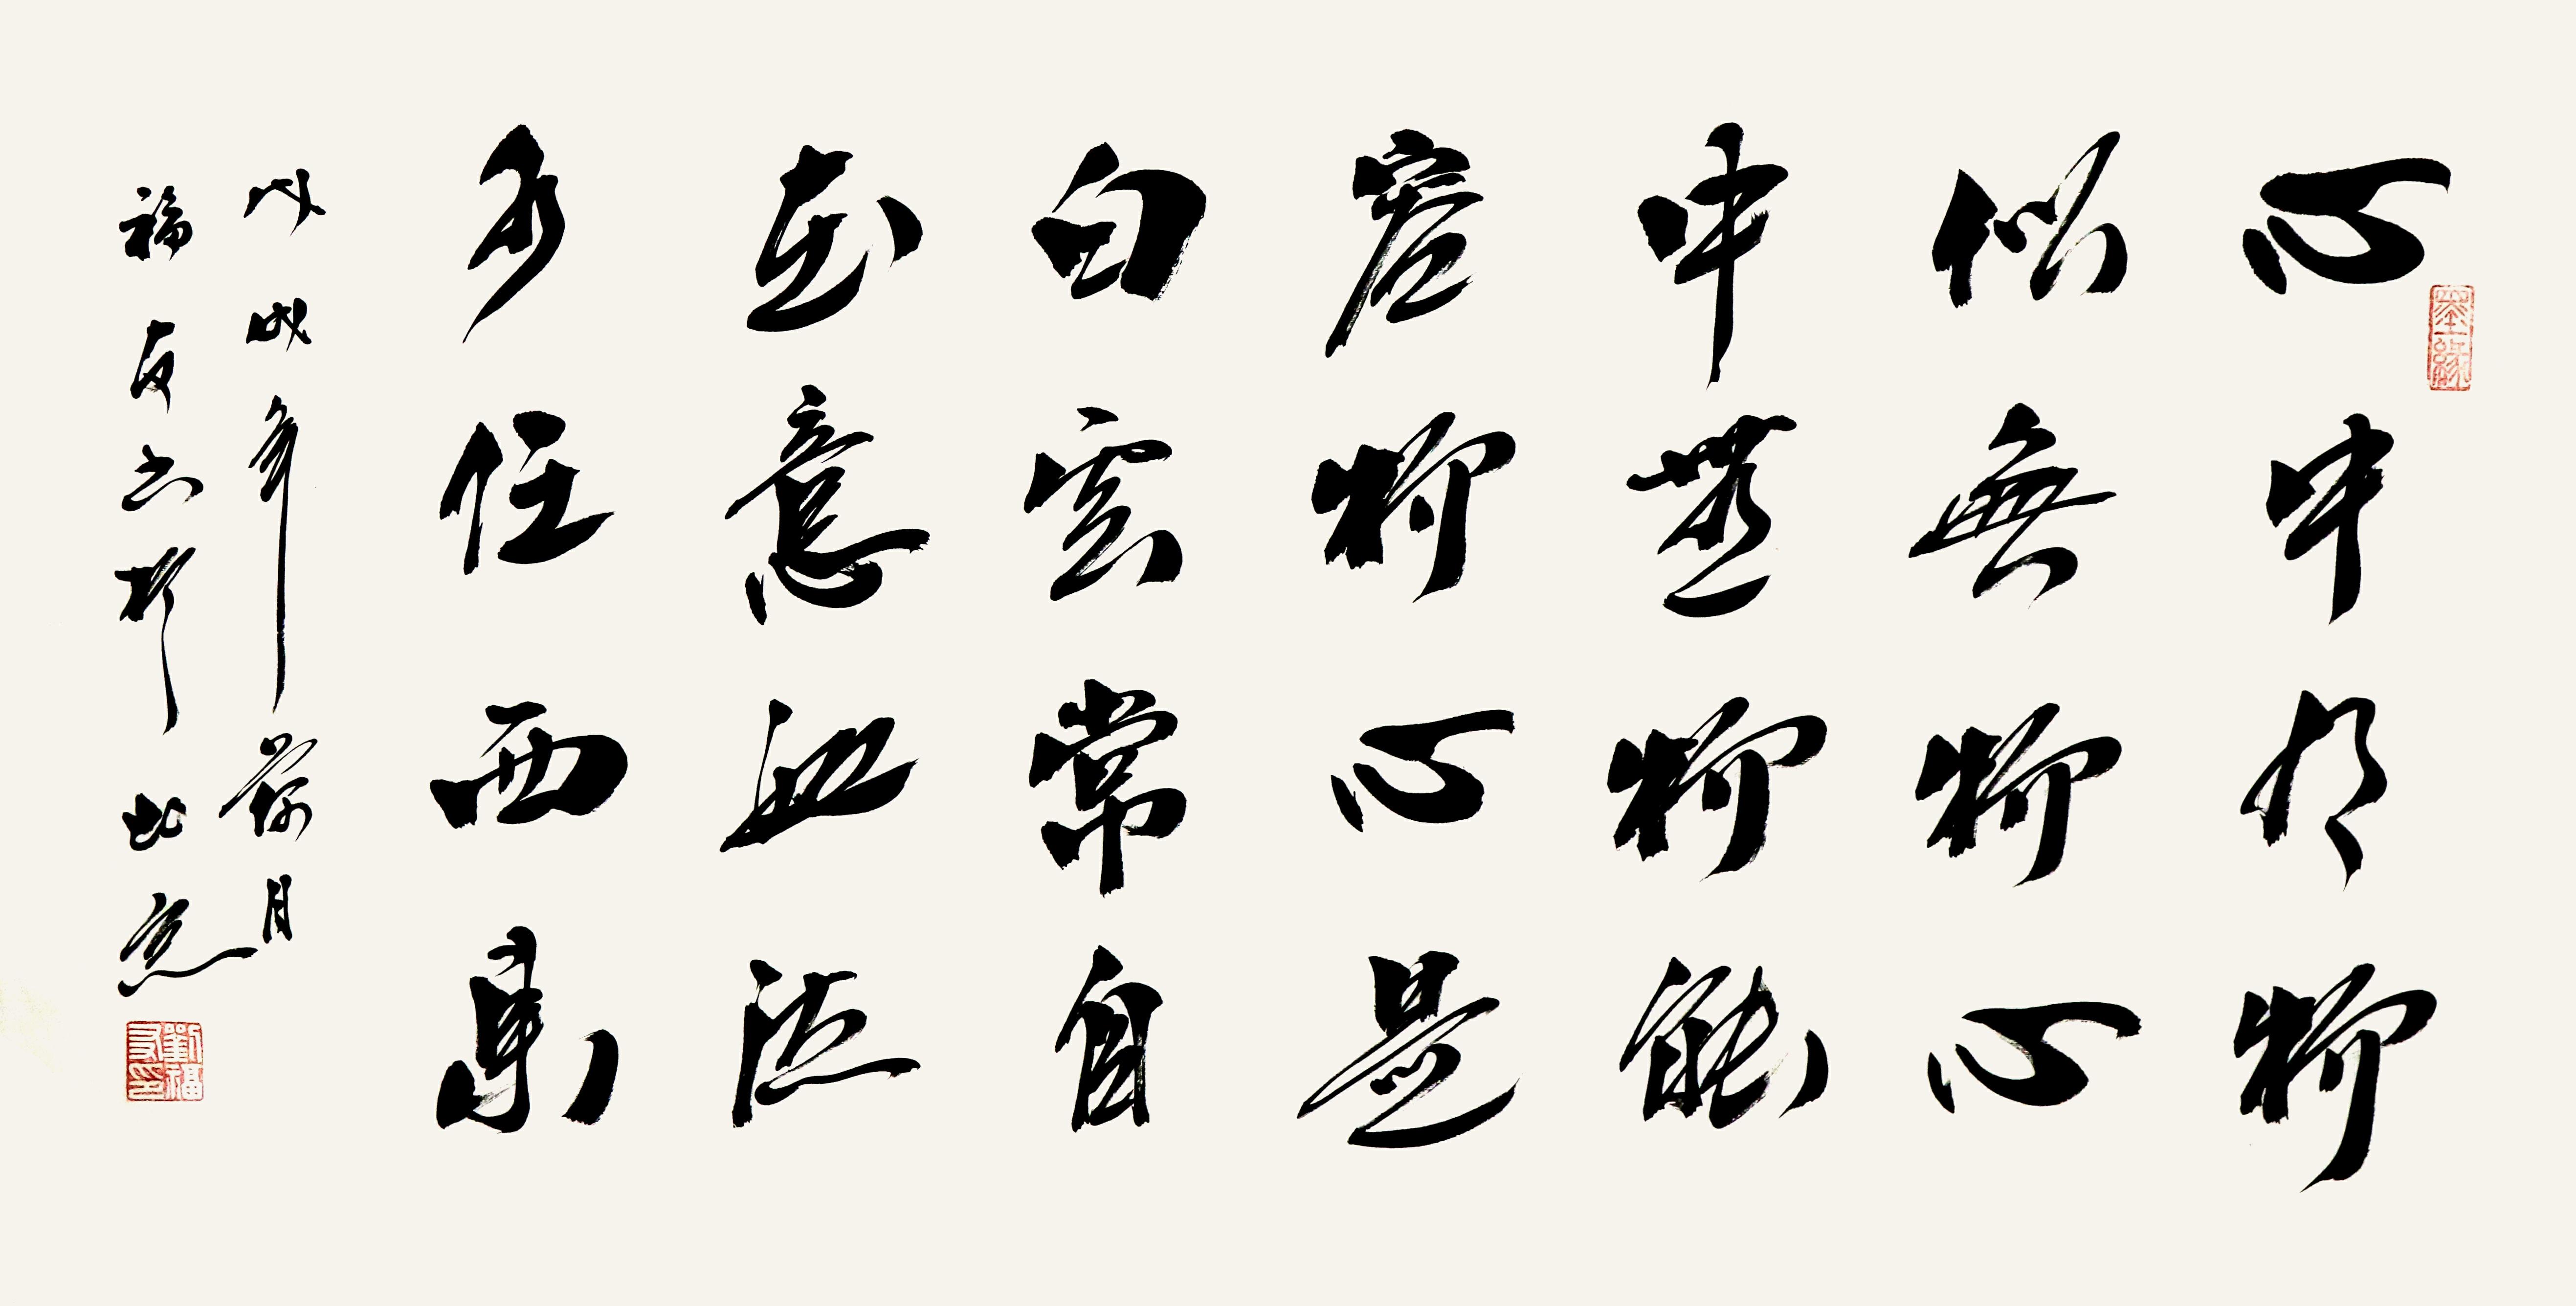 心中有物
似無物心
中無物能
容物心是
白雲常自
在意如流
水任西東
戊戌年荷月
福友书於北京
墨緣
劉福友印